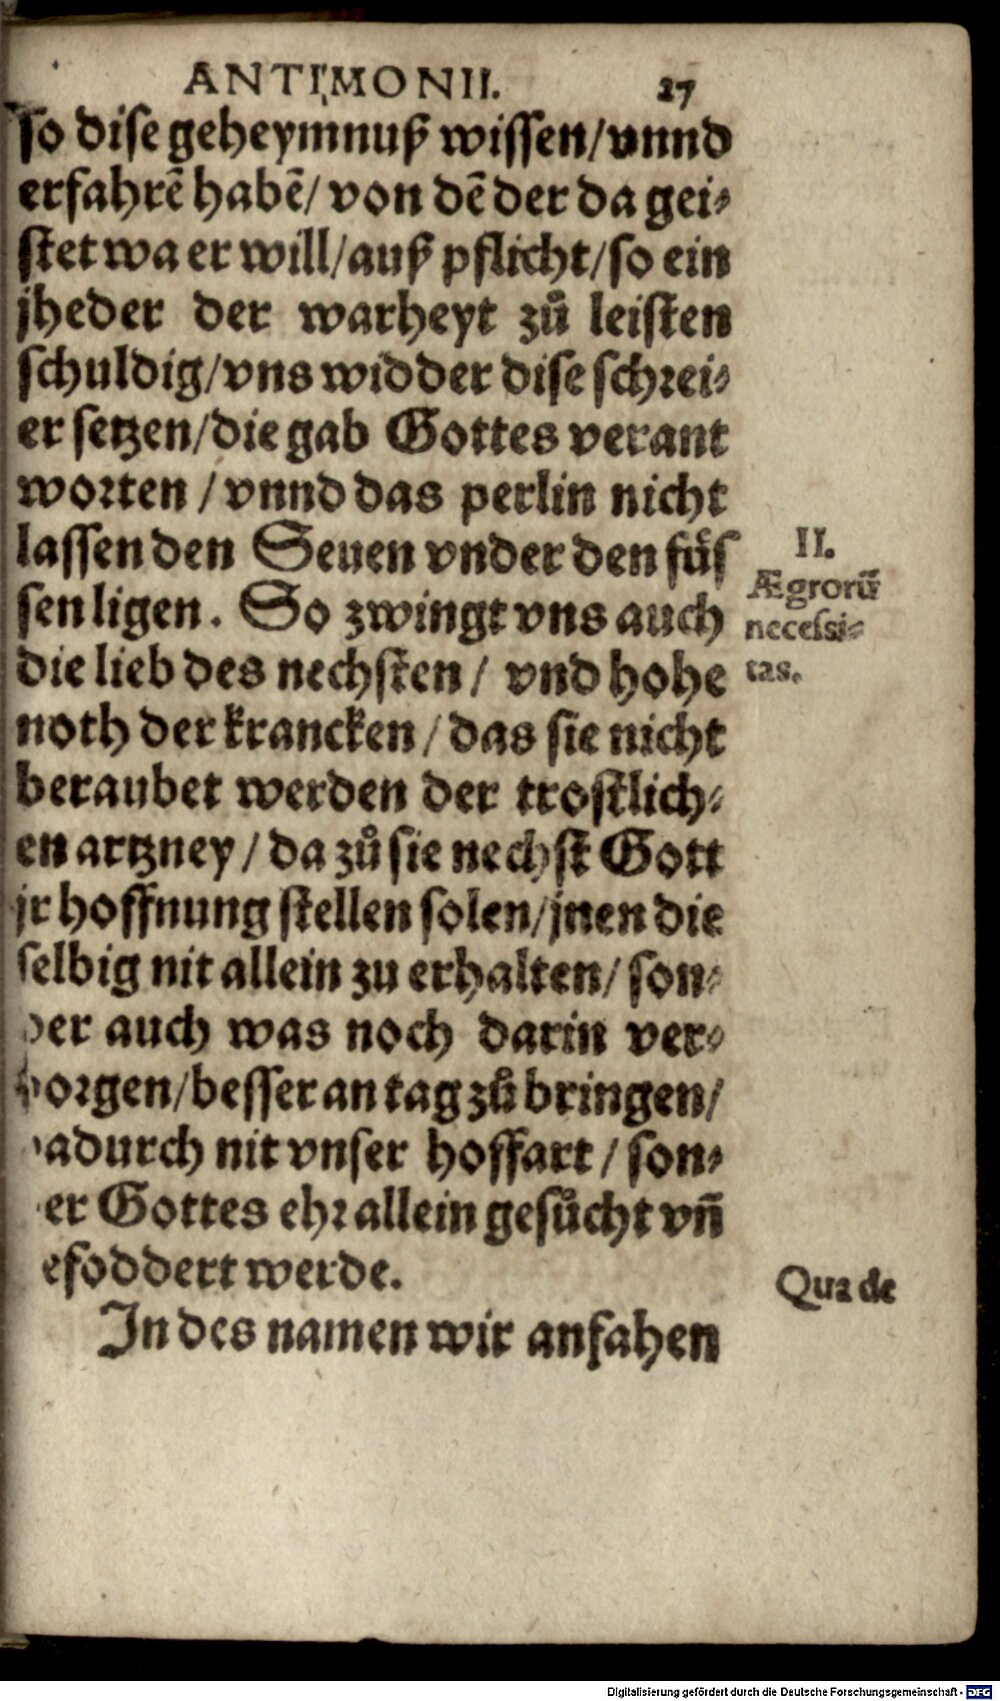 ANTIMONII. 27
so dise geheymnuß wissen/vnnd
erfahrẽ habẽ/ von dẽ der da gei⸗
stet wa er will/auß pflicht/so ein
jheder der warheyt zů leisten
schuldig/vns widder dise schrei⸗
er setzen/die gab Gottes verant
worten / vnnd das perlin nicht
lassen den Seuen vnder den füs
sen ligen. So zwingt vns auch
die lieb des nechsten / vnd hohe
noth der krancken / das sie nicht
beraubet werden der trostlich⸗
en artzney / da zů sie nechst Gott
jr hoffnung stellen solen/jnen die
selbig nit allein zu erhalten/ son⸗
der auch was noch darin ver⸗
borgen/besser an tag zů bringen/
adurch nit vnser hoffart / son⸗
er Gottes ehr allein gesůcht vñ
efoddert werde.
In des namen wir anfahen
II.
Ægrorũ
necessi⸗
tas.
Qua de
Digitalisierung gefördert durch die Deutsche Forschungsgemeinschaft - DFG